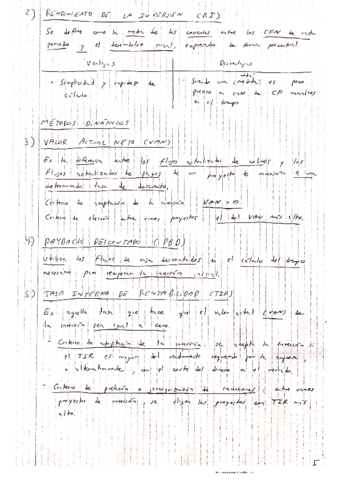 2) RENDIMIENTO DE LA INVERSIÓN (RI)
Se define como la media de los cocientes entre los CFN de cada
periodo y el desembolso inicial, expresado de forma porcentual.
Ventajas Desventajas
· Simplicidad y rapidez de
cálculo.
· Siendo una medida es poco
precisa en caso de CF
en el tiempo
MÉTODOS DINÁMICOS
3) VALOR ACTUAL NETO (VAN)
Es la diferencia entre los flujos actualizados de cobros y los
flujos actualizados de pagos de un proyecto de inversión a una
determinada tasa de descuento.
Criterio de aceptación de la inversión VAN > 0
Criterio de elección entre varios proyectos: el del VAN más alto.
4) PAYBACK DESCONTADO (PBD)
Utiliza los flujos de caja descontados en el cálculo del tiempo
necesario para recuperar la inversión inicial.
5) TASA INTERNA DE RENTABILIDAD (TIR)
Es aquella tasa que hace que el valor actual (VAN) de
la inversión sea igual a cero.
· Criterio de aceptación de la inversión se acepta la inversión si
el TIR es mayor del rendimiento requerido por la empresa,
o alternativamente, con el coste del dinero en el mercado.
· Criterio de prelación o jerarquización de inversiones: entre varios
proyectos de inversión, se eligen los proyectos con TIR más
alto.
5